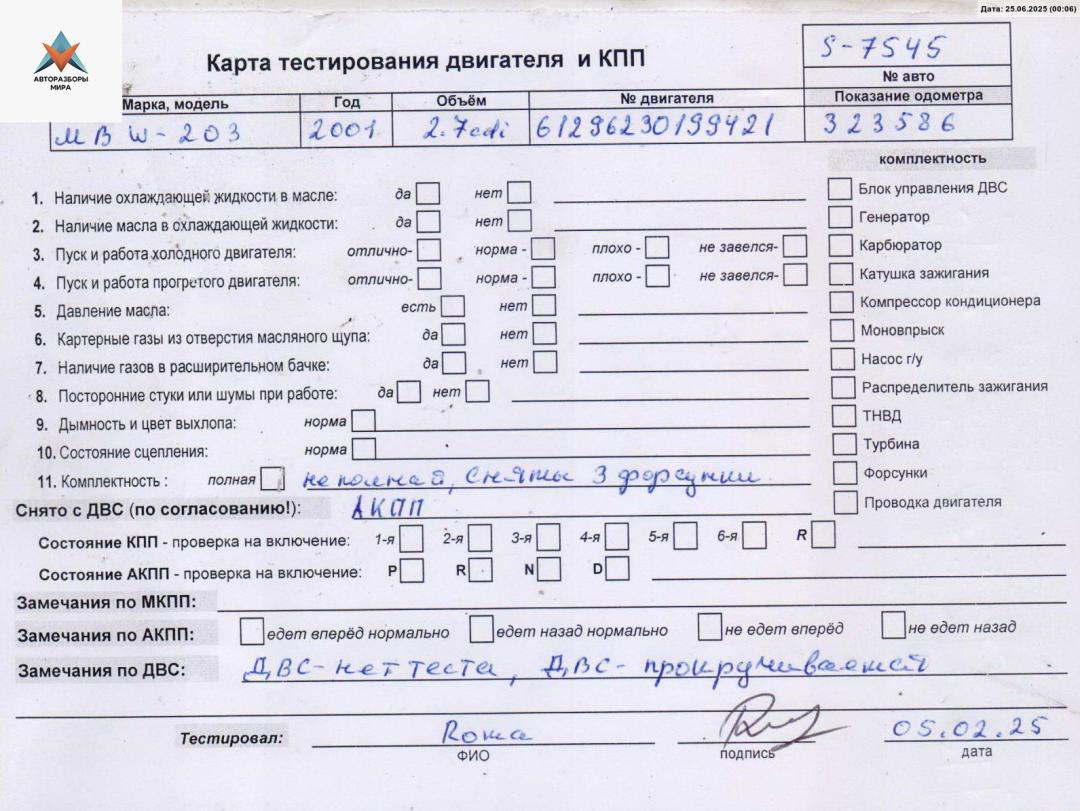 Дата: 25.06.2025 (00:06)
АВТОРАЗБОРЫ
МИРА
Карта тестирования двигателя и КПП
S-7545
№ авто
Марка, модель Год Объём № двигателя Показание одометра
МВ W-203 2001 2.7cdi 61296230199421 323586
комплектность
1. Наличие охлаждающей жидкости в масле: да нет
Блок управления ДВС
2. Наличие масла в охлаждающей жидкости: да нет
Генератор
3. Пуск и работа холодного двигателя: отлично- норма - плохо - не завелся-
Карбюратор
4. Пуск и работа прогретого двигателя: отлично- норма - плохо - не завелся-
Катушка зажигания
5. Давление масла: есть нет
Компрессор кондиционера
6. Картерные газы из отверстия масляного щупа: да нет
Моновпрыск
7. Наличие газов в расширительном бачке: да нет
Насос г/у
8. Посторонние стуки или шумы при работе: да нет
Распределитель зажигания
9. Дымность и цвет выхлопа: норма
ТНВД
10. Состояние сцепления: норма
Турбина
11. Комплектность : полная не полная, Сняты 3 форсунки
Форсунки
Снято с ДВС (по согласованию!): АКПП
Проводка двигателя
Состояние КПП - проверка на включение: 1-я 2-я 3-я 4-я 5-я 6-я R
Состояние АКПП - проверка на включение: P R N D
Замечания по МКПП:
Замечания по АКПП: едет вперёд нормально едет назад нормально не едет вперёд не едет назад
Замечания по ДВС: ДВС- нет теста, ДВС- прокручивается
Тестировал: Рома 05.02.25
ФИО подпись дата